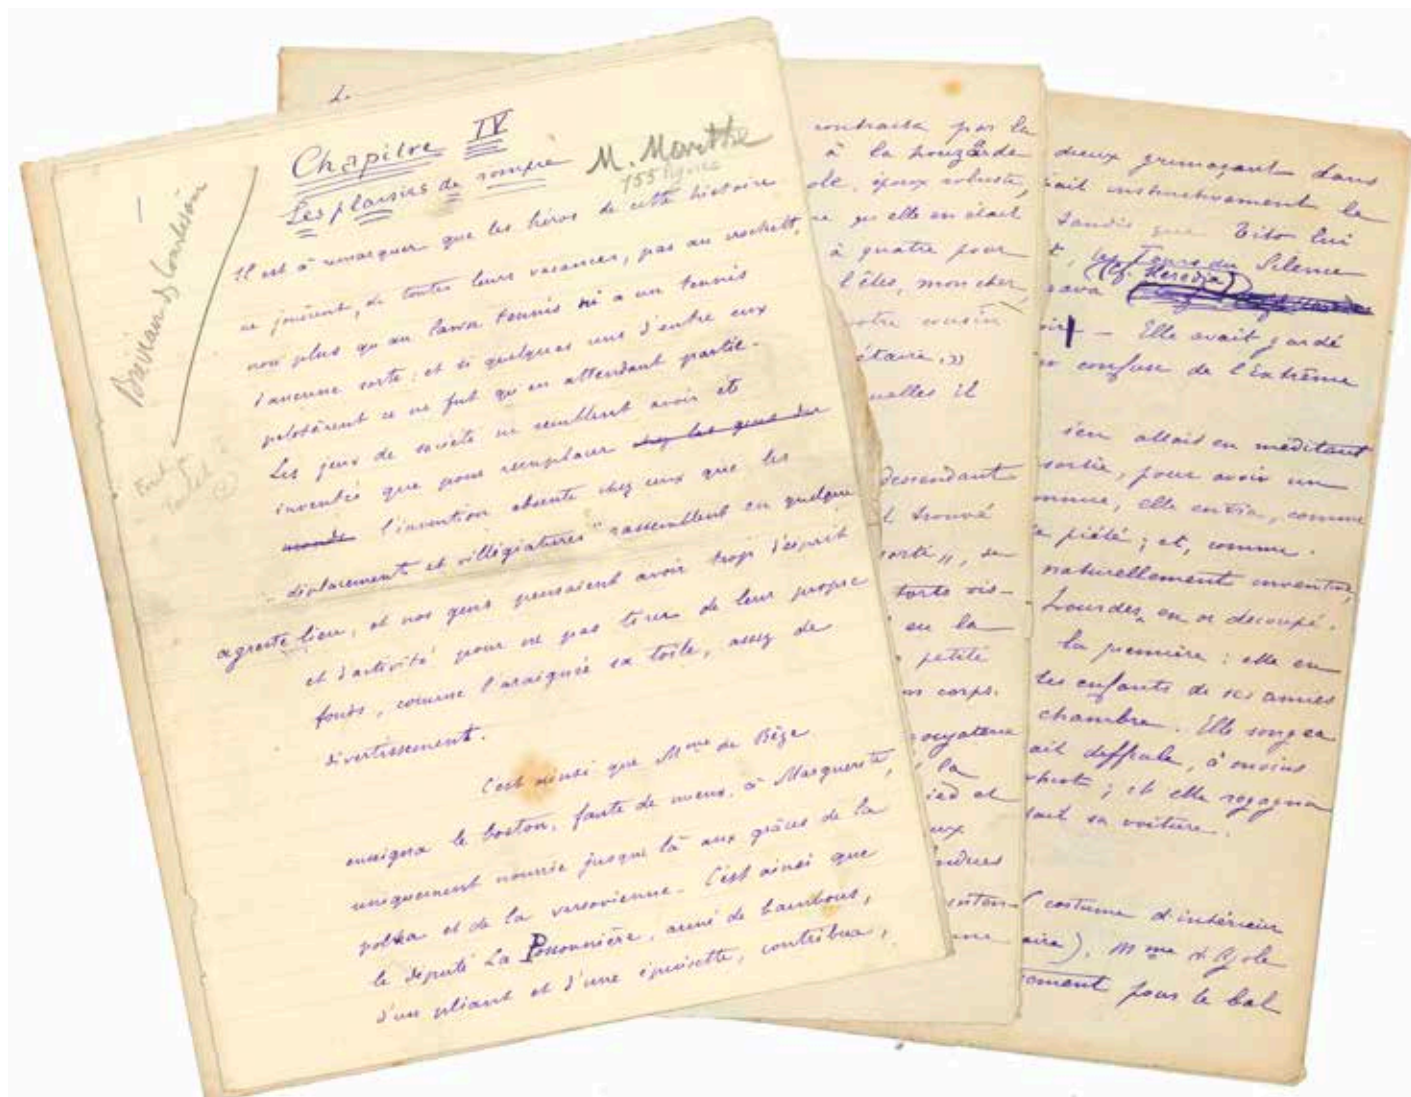 Chapitre IV
Les plaisirs de rompre
155 lignes
Il est à remarquer que les héros de cette histoire
ne jouèrent, de toutes leurs vacances, pas au crockett,
non plus qu'au lawn tennis ni à un tennis
d'aucune sorte ; et si quelques uns d'entre eux
pelotèrent ce ne fut qu'en attendant partie.
Les jeux de société ne semblent avoir été
inventés que pour remplacer chez les gens du
monde l'invention absente chez ceux que les
"déplacements et villégiatures" rassemblent en quelque
agreste lieu, et nos gens pensaient avoir trop d'esprit
et d'activité pour ne pas tirer de leur propre
fonds, comme l'araignée sa toile, assez de
divertissement.
C'est ainsi que Mme de Bège
enseigna le boston, faute de mieux, à Marguerite,
uniquement nourrie jusque là aux grâces de la
polka et de la varsovienne. C'est ainsi que
le député La Poissonnière, armé de bambous,
d'un pliant et d'une épuisette, contribua,
contracta par la
à la houzarde
ole, époux robuste,
ne qu'elle en était
à quatre pour
l'êtes, mon cher,
votre cousin
étaire.»
uelles il
descendant
trouvé
sorte„, sa
torts vis-
en la
petite
corps.
la
ied et
eux
dieux grimaçant dans
ait instinctivement le
tandis que Tito lui
t, les Tours du Silence
(cf. Heredia)
rava
oir. — Elle avait gardé
confuse de l'Extrême
s'en allait en méditant
sortie, pour avoir un
omme, elle entra, comme
piété ; et, comme
naturellement inventive,
Lourdes, en or découpé.
la première : elle en
les enfants de ses amies
chambre. Elle songea
ait difficile, à moins
; et elle regagna
sa voiture.
costume d'intérieur
aire), Mme d'Ajole
ement pour le bal